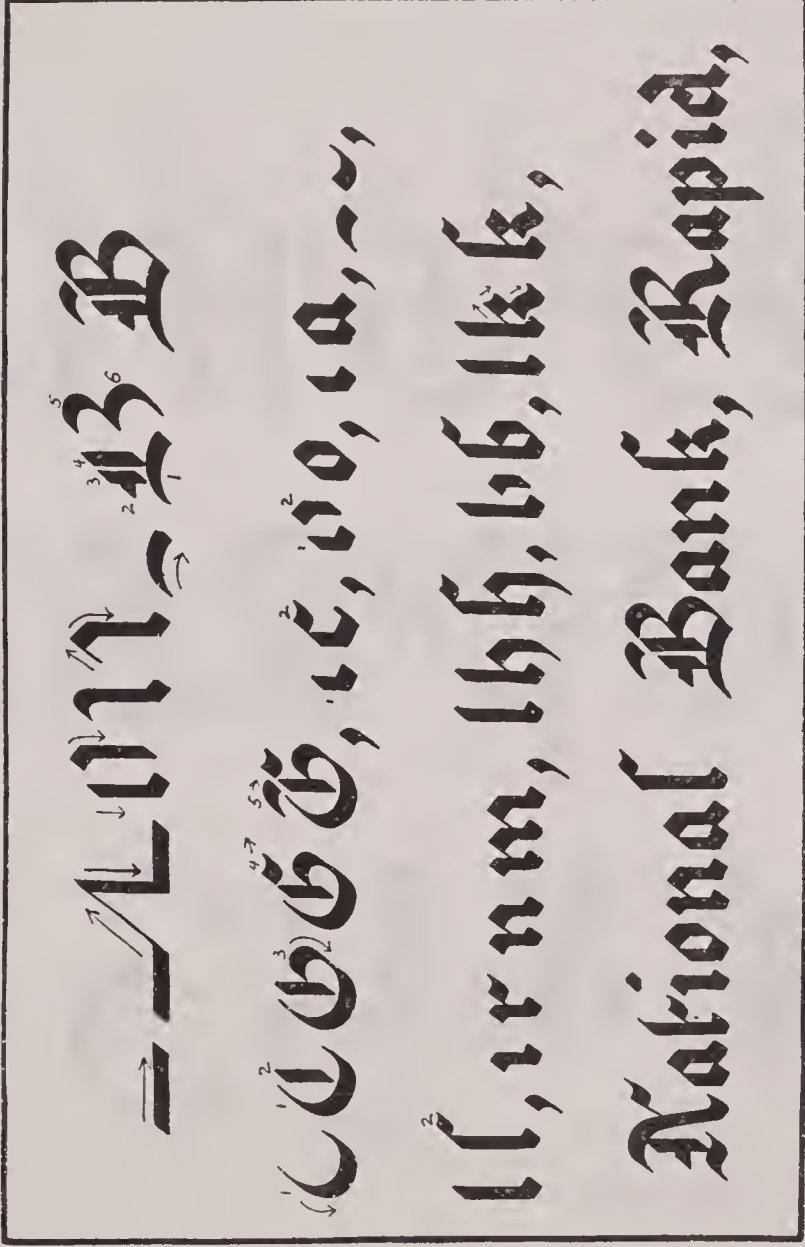 B B
G G, c, o, a,
l l, r n m, l h h, b b, l k k,
National Bank, Rapid,